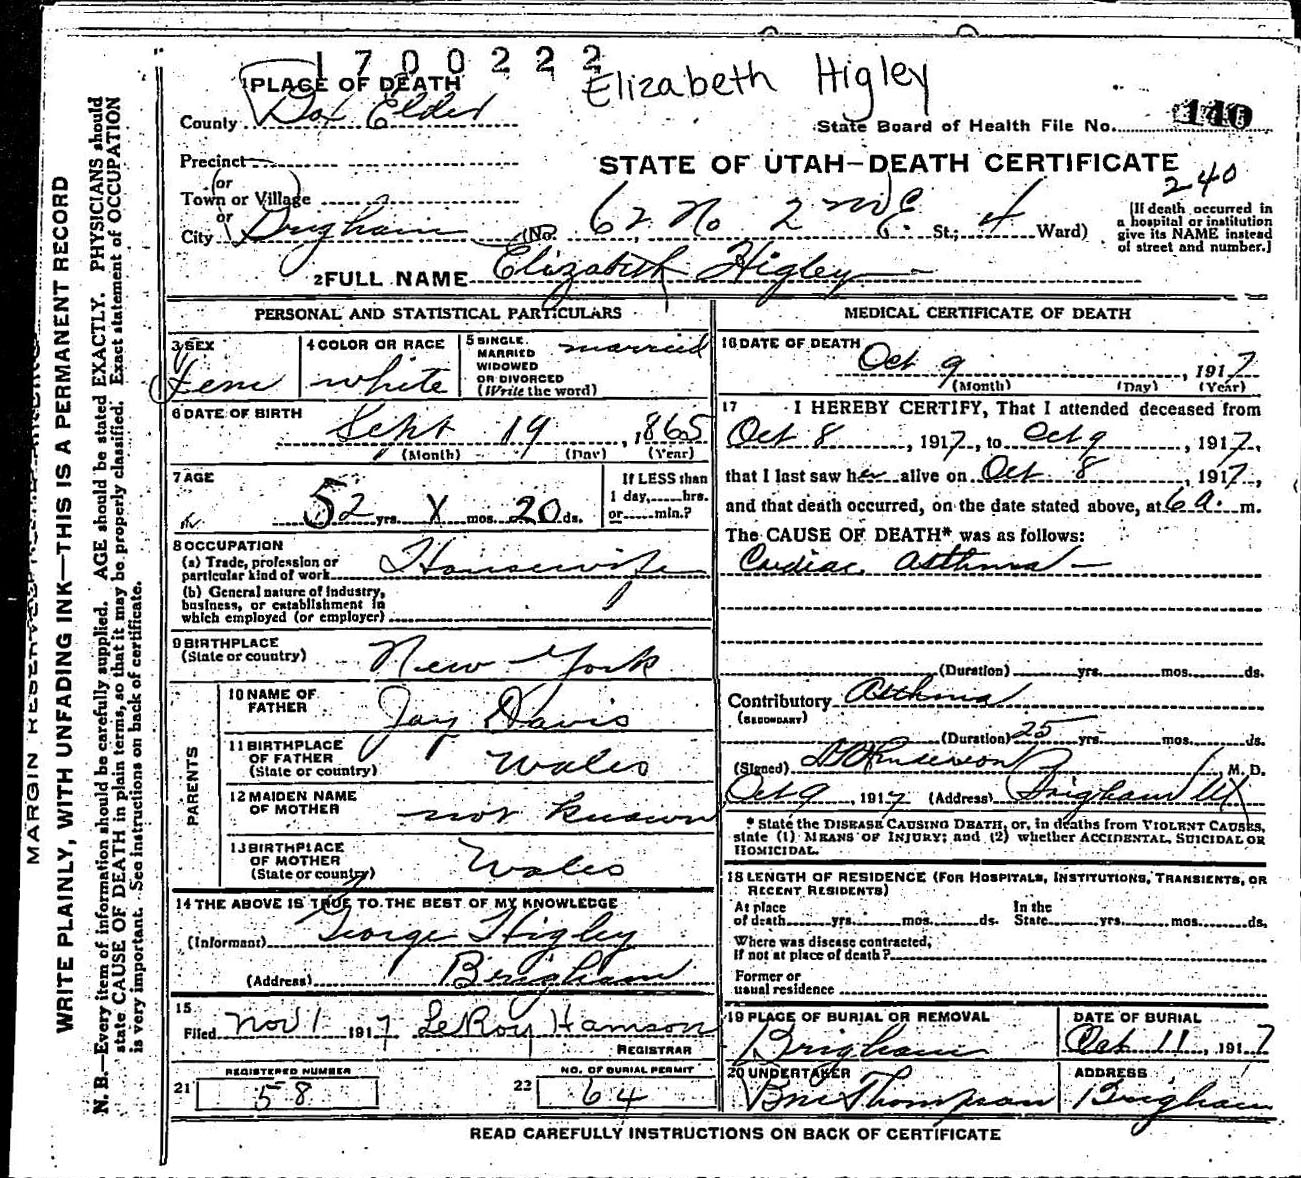 1700222
Elizabeth Higley
1 PLACE OF DEATH
County Box Elder
State Board of Health File No. 140
Precinct
STATE OF UTAH—DEATH CERTIFICATE
240
(or
Town or Village)
or
City Brigham (No. 62 No 2nd E. St.; 4 Ward)
[If death occurred in
a hospital or institution
give its NAME instead
of street and number.]
2 FULL NAME Elizabeth Higley
PERSONAL AND STATISTICAL PARTICULARS
3 SEX
Fem
4 COLOR OR RACE
white
5 SINGLE.
MARRIED
WIDOWED
OR DIVORCED
(Write the word)
married
6 DATE OF BIRTH
Sept 19, 1865
(Month) (Day) (Year)
7 AGE
52 yrs. X mos. 20 ds.
If LESS than
1 day, hrs.
or min.?
8 OCCUPATION
(a) Trade, profession or
particular kind of work Housewife
(b) General nature of industry,
business, or establishment in
which employed (or employer)
9 BIRTHPLACE
(State or country) New York
PARENTS
10 NAME OF
FATHER Jay Davis
11 BIRTHPLACE
OF FATHER
(State or country) Wales
12 MAIDEN NAME
OF MOTHER not known
13 BIRTHPLACE
OF MOTHER
(State or country) Wales
14 THE ABOVE IS TRUE TO THE BEST OF MY KNOWLEDGE
(Informant) George Higley
(Address) Brigham
15
Filed Nov 1 1917 LeRoy Hamson
REGISTRAR
REGISTERED NUMBER
21 58
NO. OF BURIAL PERMIT
22 64
MEDICAL CERTIFICATE OF DEATH
16 DATE OF DEATH
Oct 9, 1917
(Month) (Day) (Year)
17 I HEREBY CERTIFY, That I attended deceased from
Oct 8, 1917, to Oct 9, 1917,
that I last saw her alive on Oct 8, 1917,
and that death occurred, on the date stated above, at 6 a. m.
The CAUSE OF DEATH* was as follows:
Cardiac Asthma
(Duration) yrs. mos. ds.
Contributory Asthma
(SECONDARY)
(Duration) 25 yrs. mos. ds.
(Signed) M. D.
Oct 9, 1917 (Address) Brigham Ut
* State the DISEASE CAUSING DEATH, or, in deaths from VIOLENT CAUSES,
state (1) MEANS OF INJURY; and (2) whether ACCIDENTAL, SUICIDAL OR
HOMICIDAL.
18 LENGTH OF RESIDENCE (FOR HOSPITALS, INSTITUTIONS, TRANSIENTS, OR
RECENT RESIDENTS)
At place
of death yrs. mos. ds.
In the
State yrs. mos. ds.
Where was disease contracted,
If not at place of death?
Former or
usual residence
19 PLACE OF BURIAL OR REMOVAL
Brigham
DATE OF BURIAL
Oct 11, 1917
20 UNDERTAKER
Thompson
ADDRESS
Brigham
READ CAREFULLY INSTRUCTIONS ON BACK OF CERTIFICATE
MARGIN
WRITE PLAINLY, WITH UNFADING INK—THIS IS A PERMANENT RECORD
N. B.—Every item of information should be carefully supplied. AGE should be stated EXACTLY. PHYSICIANS should
state CAUSE OF DEATH in plain terms, so that it may be properly classified. Exact statement of OCCUPATION
is very important. See instructions on back of certificate.